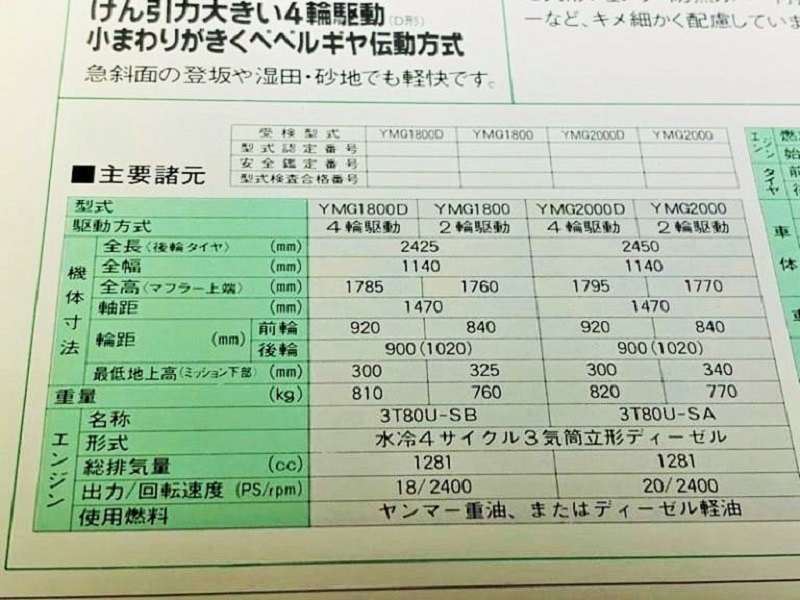 けん引力大きい4輪駆動(D形)
小まわりがきくベベルギヤ伝動方式
急斜面の登坂や湿田・砂地でも軽快です。
ーなど、キメ細かく配慮していま
受検型式 YMG1800D YMG1800 YMG2000D YMG2000
型式認定番号
安全鑑定番号
型式検査合格番号
■主要諸元
型式 YMG1800D YMG1800 YMG2000D YMG2000
駆動方式 4輪駆動 2輪駆動 4輪駆動 2輪駆動
機体寸法
全長(後輪タイヤ) (mm) 2425 2450
全幅 (mm) 1140 1140
全高(マフラー上端) (mm) 1785 1760 1795 1770
軸距 (mm) 1470 1470
輪距 (mm) 前輪 920 840 920 840
後輪 900(1020) 900(1020)
最低地上高(ミッション下部) (mm) 300 325 300 340
重量 (kg) 810 760 820 770
エンジン
名称 3T80U-SB 3T80U-SA
形式 水冷4サイクル3気筒立形ディーゼル
総排気量 (cc) 1281 1281
出力/回転速度 (PS/rpm) 18/2400 20/2400
使用燃料 ヤンマー重油、またはディーゼル軽油
エンジン
燃
始
タイヤ
前
後
車体